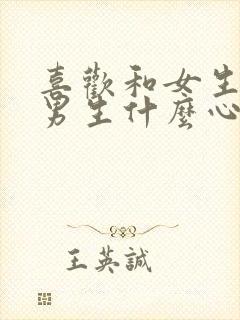 喜歡和女生
男生什麼心
王英誠